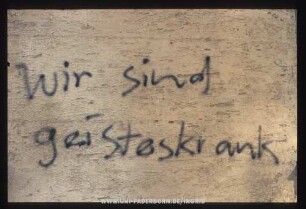 Wir sind
geisteskrank
WWW.UNI-PADERBORN.DE/INGRID